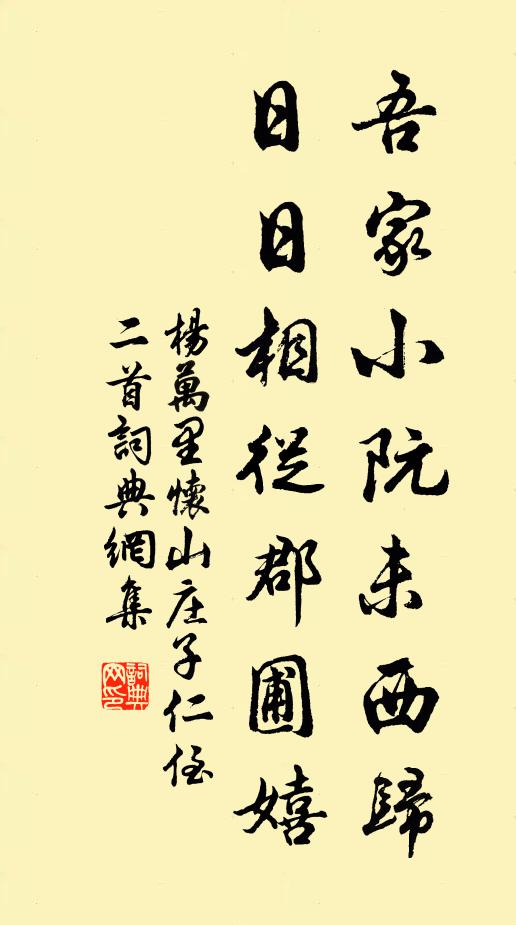 吾家小阮未西歸
日日相從郡圃嬉
楊萬里懷山庄子仁侄
二首詞典網集
詞典
网印